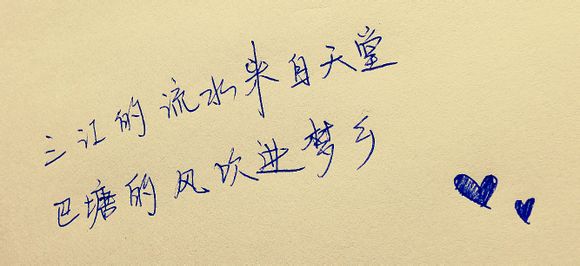 三江的流水来自天堂
巴塘的风吹进梦乡